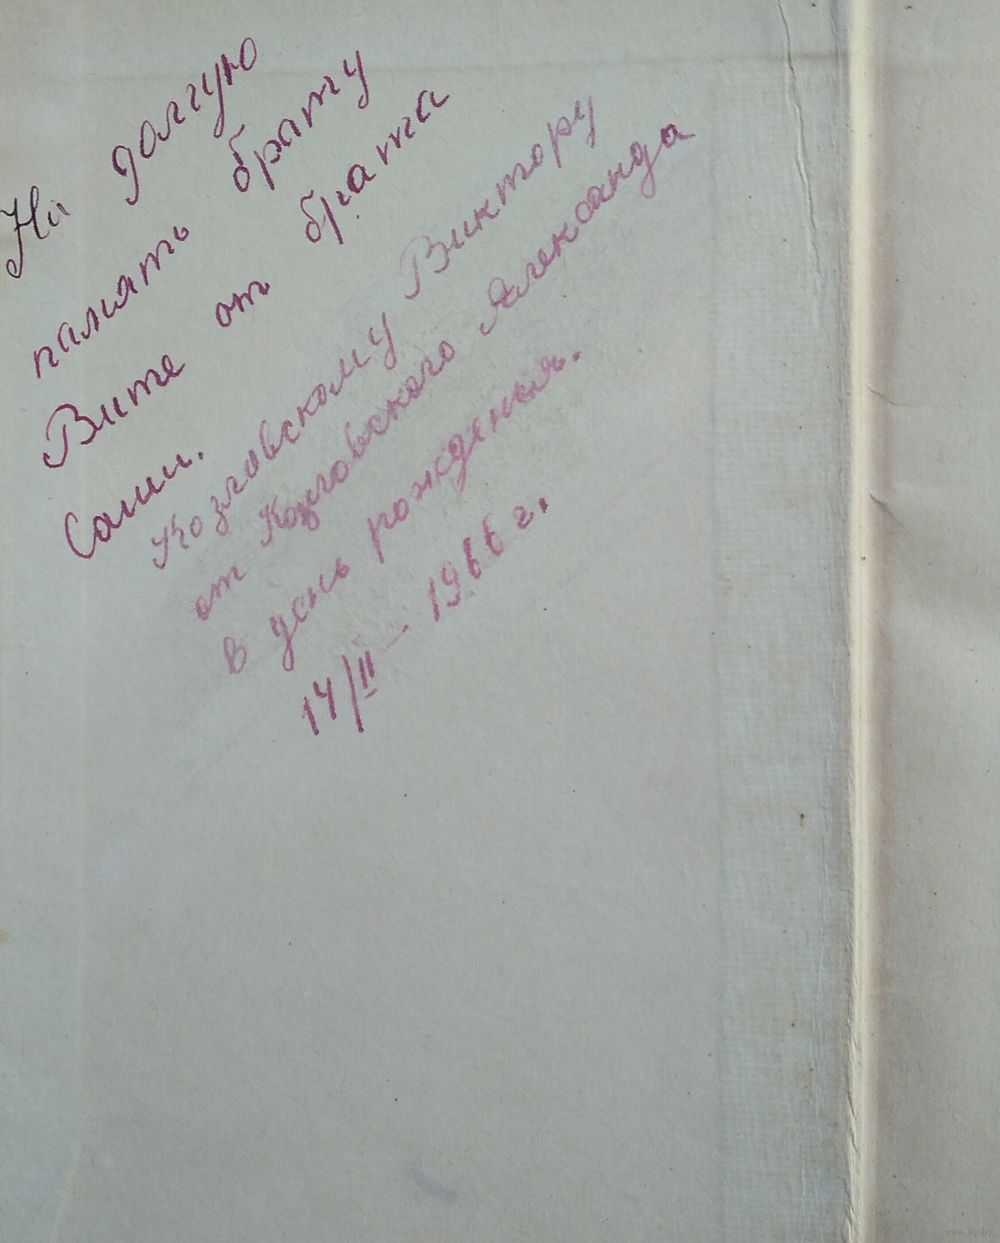 На долгую
память брату
Вите от брата
Саши.
Козловскому Виктору
от Козловского Александа
в день рожденья.
14/II — 1966 г.
www.ay.by